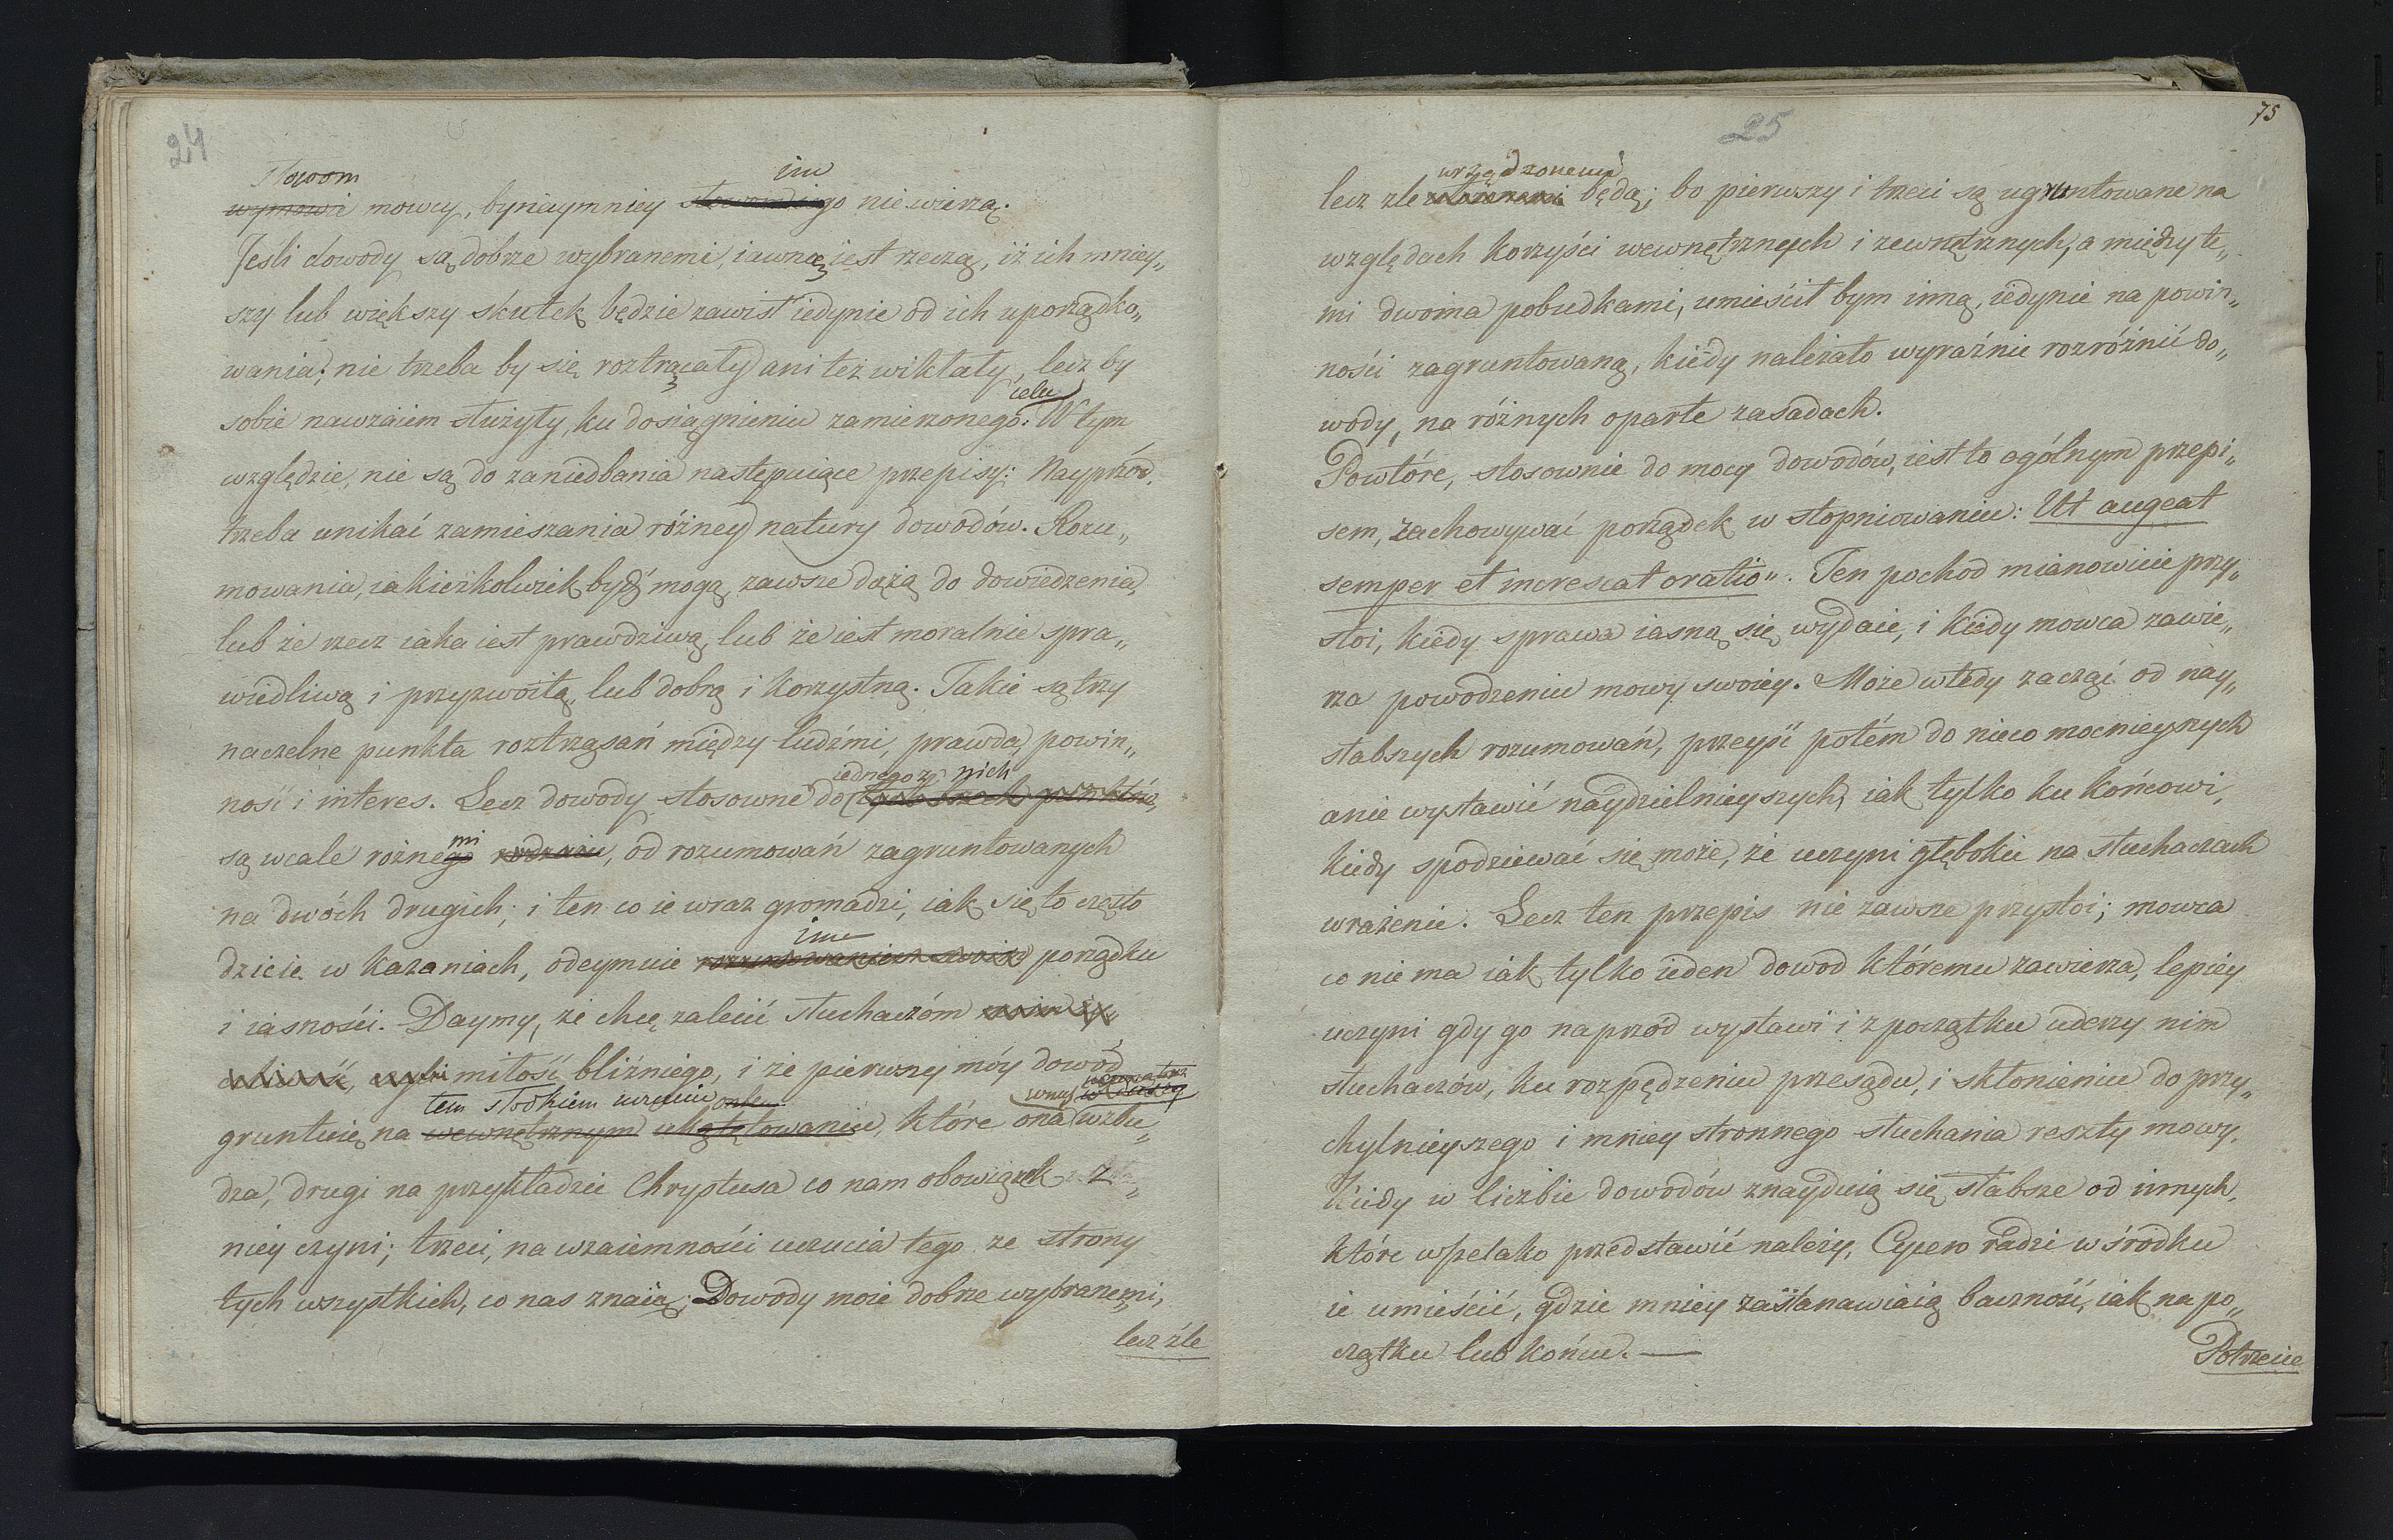 24
słowom im
wymowie mowcy, bynaymniey go nie wierzą.
Jeśli dowody są dobrze wybranemi, iawną iest rzeczą, iż ich mniey„
szy lub większy skutek będzie zawisł iedynie od ich uporządko„
wania; nie trzeba by się roztrącały ani też wikłały, lecz by
celu
sobie nawzaiem służyły, ku dosiągnieniu zamierzonego. W tym
względzie, nie są do zaniedbania następuiące przepisy: Nayprzód,
trzeba unikać zamieszania różney natury dowodów. Rozu„
mowania, iakieżkolwiek bydź mogą, zawsze dążą do dowiedzenia,
lub że rzecz iaka iest prawdziwą, lub że iest moralnie spra„
wiedliwą i przyzwoitą, lub dobrą i korzystną. Takie są trzy
naczelne punkta roztrząsań między ludźmi, prawda, powin„
iednego z nich
ność i interes. Lecz dowody stosowne do tych trzech punktów,
mi
są wcale różnego rodzaiu, od rozumowań zagruntowanych
na dwóch drugich; i ten co ie wraz gromadzi, iak się to często
im
dzieie w kazaniach, odeymuie rozumowaniom swoim porządku
i iasności. Daymy, że chcę zalecić słuchaczom
czyli miłość bliźniego, i że pierwszy móy dowód
tem słodkiem uczuciu wnas
gruntuię na wewnętrznym ukontentowaniu, które ona wzbu„
dza, drugi na przykładzie Chrystusa co nam obowiązek z
niey czyni; trzeci, na wzaiemności uczucia tego ze strony
tych wszystkich, co nas znaią; Dowody moie dobrze wybranemi,
lecz źle
75
25
urządzonemi
lecz zle będą; bo pierwszy i trzeci są ugruntowane na
względach korzyści wewnętrznych i zewnętrznych, a między te„
mi dwoma pobudkami, umieścił bym inną, iedynie na powin„
ności zagruntowaną, kiedy należało wyraźnie rozróżnić do„
wody, na różnych oparte zasadach.
Powtóre, stosownie do mocy dowodów, iest to ogólnym przepi„
sem, zachowywać porządek w stopniowaniu: Ut augeat
semper et increscat oratio„. Ten pochod mianowicie przy„
stoi, kiedy sprawa iasną się wydaie, i kiedy mowca zawie„
rza powodzeniu mowy swoiey. Może wtedy zacząć od nay„
słabszych rozumowań, przeyść potém do nieco mocnieyszych
a nie wystawić naydzielnieyszych, iak tylko ku końcowi,
kiedy spodziewać się może, że uczyni głębokie na słuchaczach
wrażenie. Lecz ten przepis nie zawsze przystoi; mowca
co nie ma iak tylko ieden dowod któremu zawierza, lepiey
uczyni gdy go naprzód wystawi i z początku uderzy nim
słuchaczów, ku rozpędzeniu przesądu, i skłonieniu do przy„
chylnieyszego i mniey stronnego słuchania reszty mowy.
Kiedy w liczbie dowodów znayduią się słabsze od innych,
które wszelako przedstawić należy, Cycero radzi w środku
ie umieścić, gdzie mniey zastanawiaią baczność, iak na po„
czątku lub końcu. —
Potrzecie